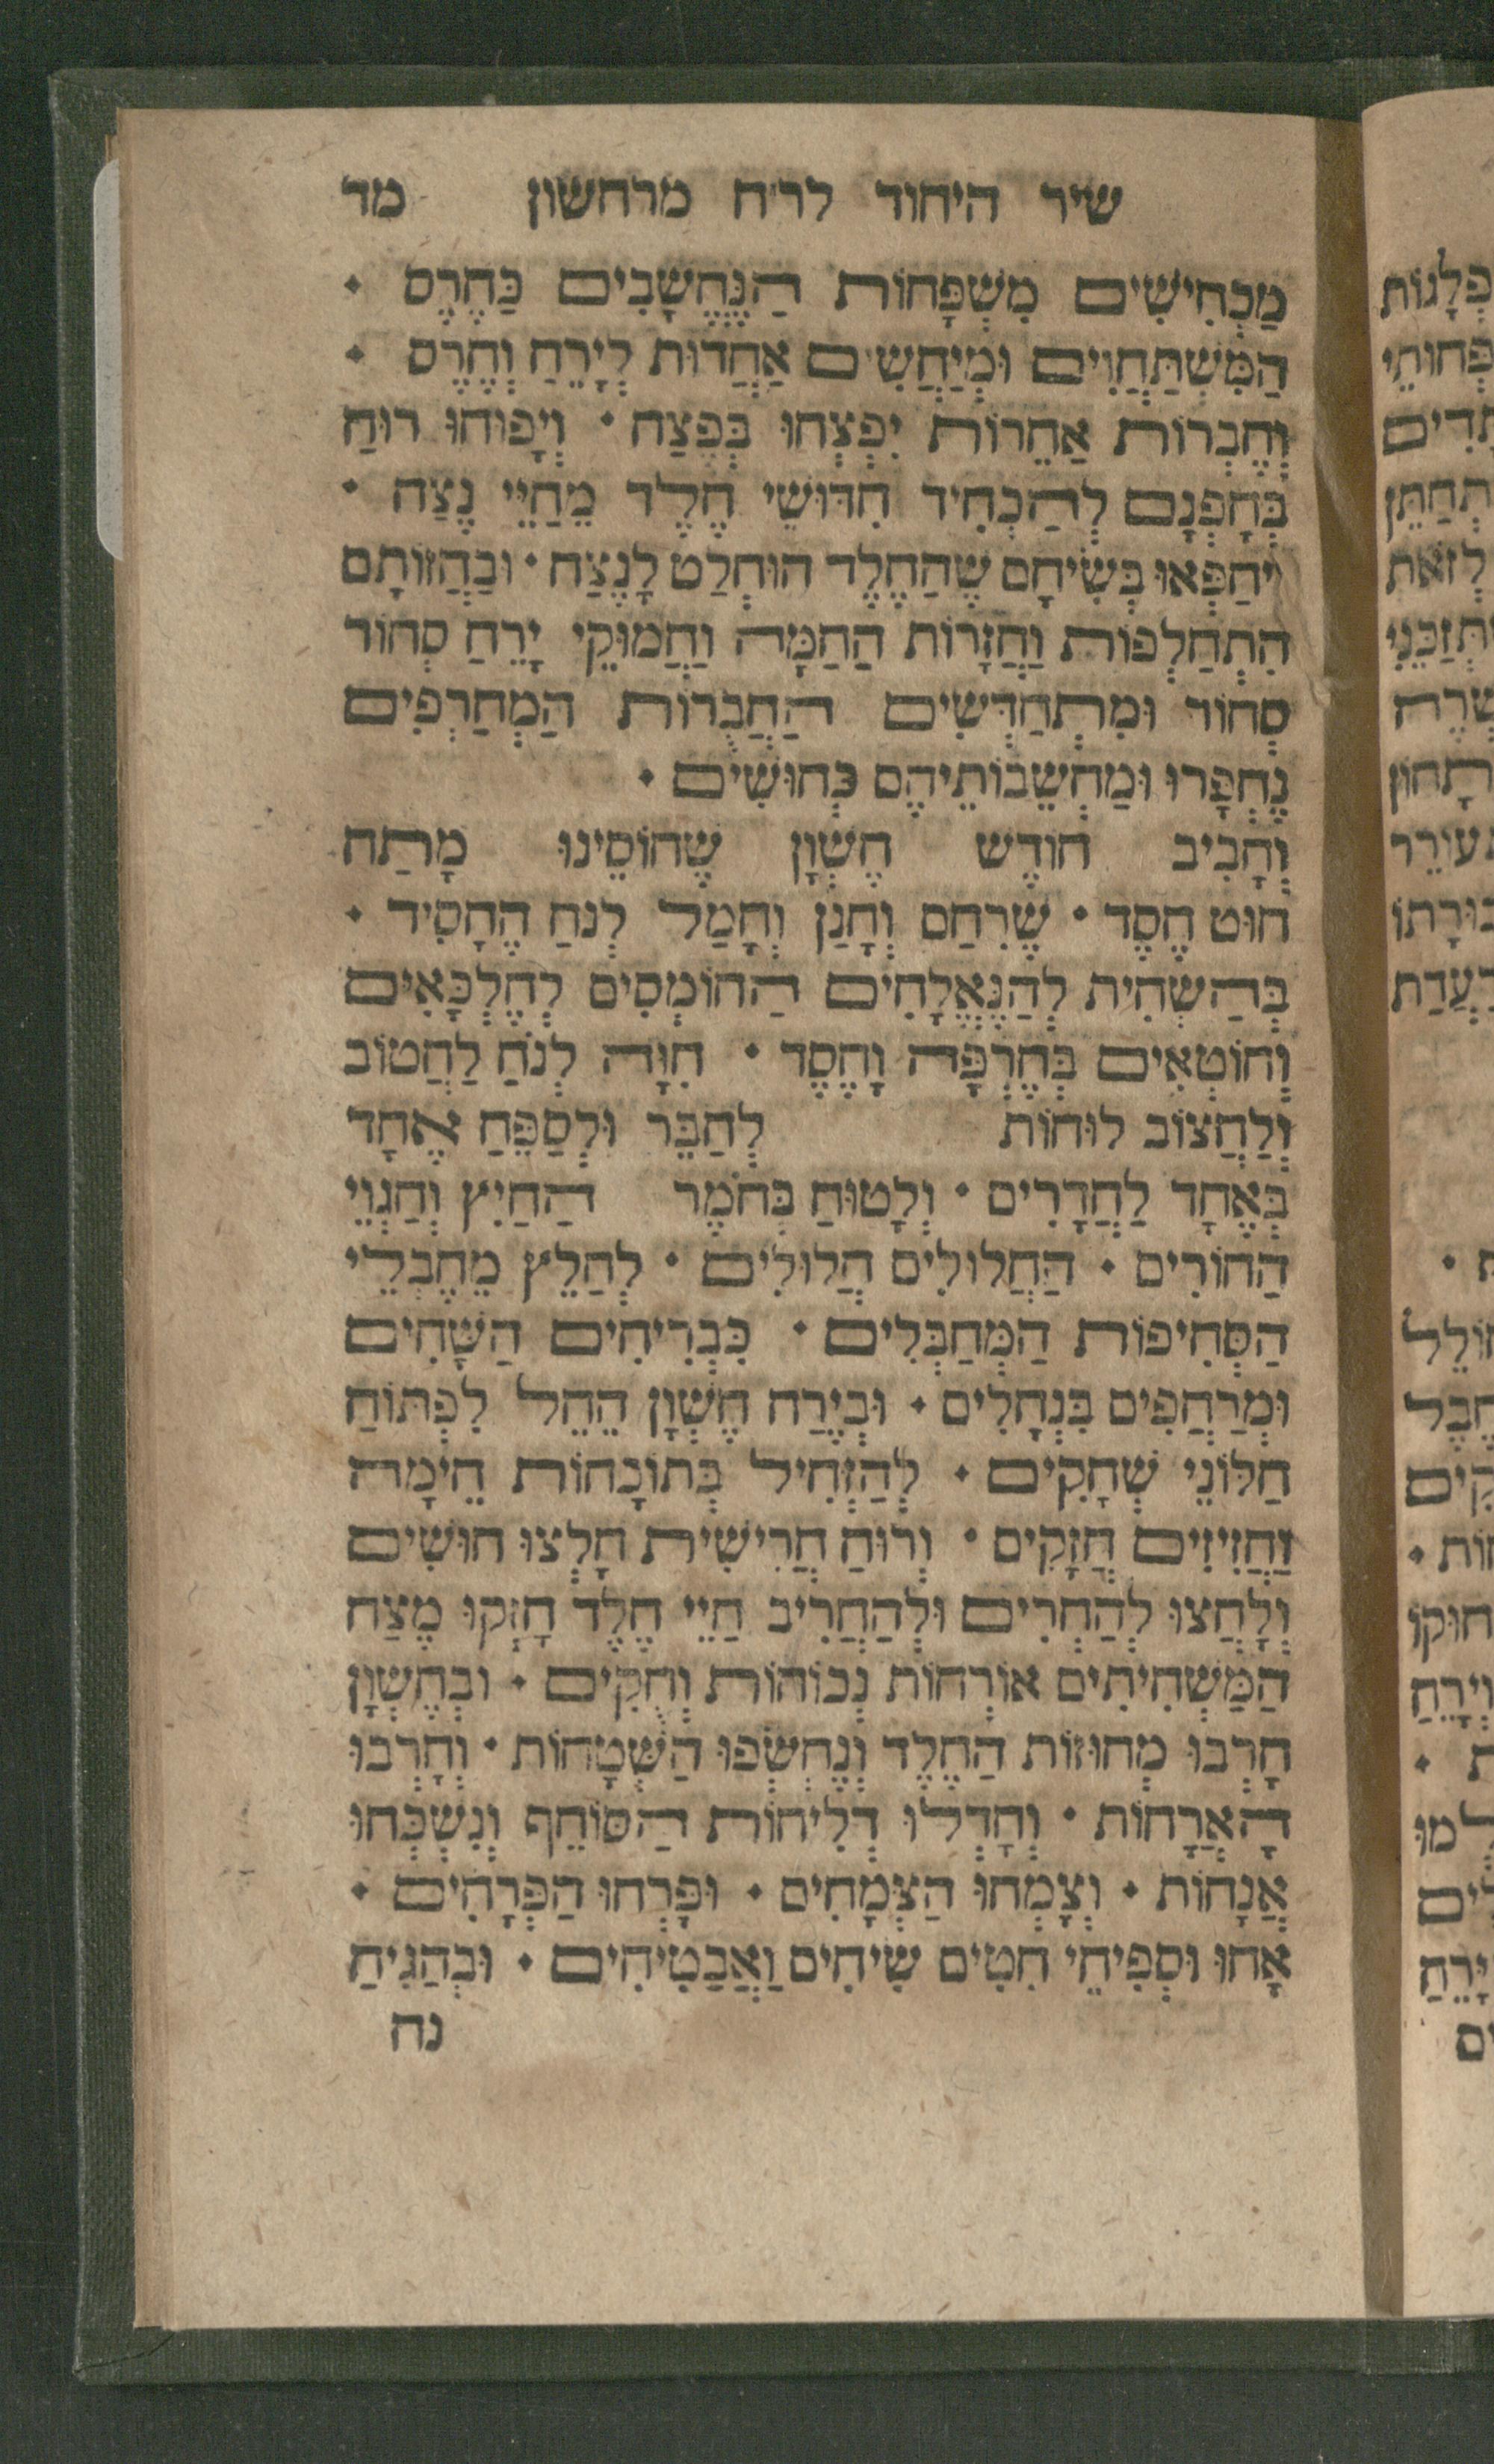 שיר היחוד לר״ח מרחשון מד
מַכְחִישִׁים מִשְׁפָּחוֹת הַנֶּחֱשָׁבִים כַּחֶרֶס •
הַמִּשְׁתַּחֲוִים וּמְיַחֲשִׂים אַחֲדוּת לְיָרֵחַ וְחֶרֶס •
וְחֶבְרוֹת אַחֵרוֹת יִפְצְחוּ בְּפֶצַח • וְיָפוּחוּ רוּחַ
בְּחָפְנָם לְהַכְחִיד חִדּוּשֵׁי חֶלֶד מֵחַיֵּי נֶצַח •
יְחַפְּאוּ בְּשִׂיחָם שֶׁהַחֶלֶד הוּחְלַט לָנֶצַח • וּבַהֲזוֹתָם
הִתְחַלְפוֹת וַחֲזָרוֹת הַחַמָּה וַחֲמוּקֵי יָרֵחַ סְחוֹר
סְחוֹר וּמִתְחַדְּשִׁים הַחֲבֵרוֹת הַמְחַרְפִים
נֶחְפָּרוּ וּמַחְשְׁבוֹתֵיהֶם כְּחוּשִׁים •
וְחָבִיב חוֹדֶשׁ חֶשְׁוָן שֶׁחוֹסֵינוּ מָתַח
חוּט חֶסֶד • שֶׁרִחַם וְחָנַן וְחָמַל לְנֹחַ הֶחָסִיד •
בְּהַשְׁחִית לְהַנֶּאֱלָחִים הַחוֹמְסִים לְחֶלְכָּאִים
וְחוֹטְאִים בְּחֶרְפָּה וָחֶסֶד • חִוָּה לְנֹחַ לַחֲטוֹב
וְלַחֲצוֹב לוּחוֹת לְחַבֵּר וּלְסַפֵּחַ אֶחָד
בְּאֶחָד לַחֲדָרִים • וְלָטוּחַ בְּחֹמֶר הַחַיִץ וְחַגְוֵי
הַחוֹרִים • הַחֲלוּלִים חֲלוּלִים • לְחַלֵּץ מֵחֶבְלֵי
הַסְּחִיפוֹת הַמְּחַבְּלִים • כִּבְרִיחִים הַשָּׁחִים
וּמְרַחֲפִים בִּנְחָלִים • וּבְיֶרַח חֶשְׁוָן הֵחֵל לִפְתּוֹחַ
חַלּוֹנֵי שְׁחָקִים • לְהַזְחִיל בְּתוֹכָחוֹת חֵימָה
וַחֲזִיזִים חֲזָקִים • וְרוּחַ חֲרִישִׁית חָלְצוּ חוּשִׁים
וְלָחֲצוּ לְהַחְרִים וּלְהַחֲרִיב חַיֵּי חֶלֶד חָזְקוּ מֶצַח
הַמַּשְׁחִיתִים אוֹרְחוֹת נְכוֹחוֹת וְחֻקִּים • וּבְחֶשְׁוָן
חָרְבוּ מְחוּזוֹת הַחֶלֶד וְנֶחְשְׂפוּ הַשְּׁטָחוֹת • וְחָרְבוּ
הָאֲרָחוֹת • וְחָדְלוּ דְּלִיחוֹת הַסּוֹחֵף וְנִשְׁכְּחוּ
אֲנָחוֹת • וְצָמְחוּ הַצְּמָחִים • וּפָרְחוּ הַפְּרָחִים •
אָחוּ וּסְפִיחֵי חִטִּים שִׂיחִים וַאֲבַטִּיחִים • וּבְהַגִּיחַ
נח